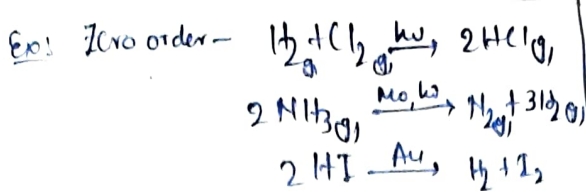 Ex: Zero order – H₂(g) + Cl₂(g) —hν→ 2HCl(g)
2NH₃(g) —Mo, hν→ N₂(g) + 3H₂(g)
2HI —Au→ H₂ + I₂